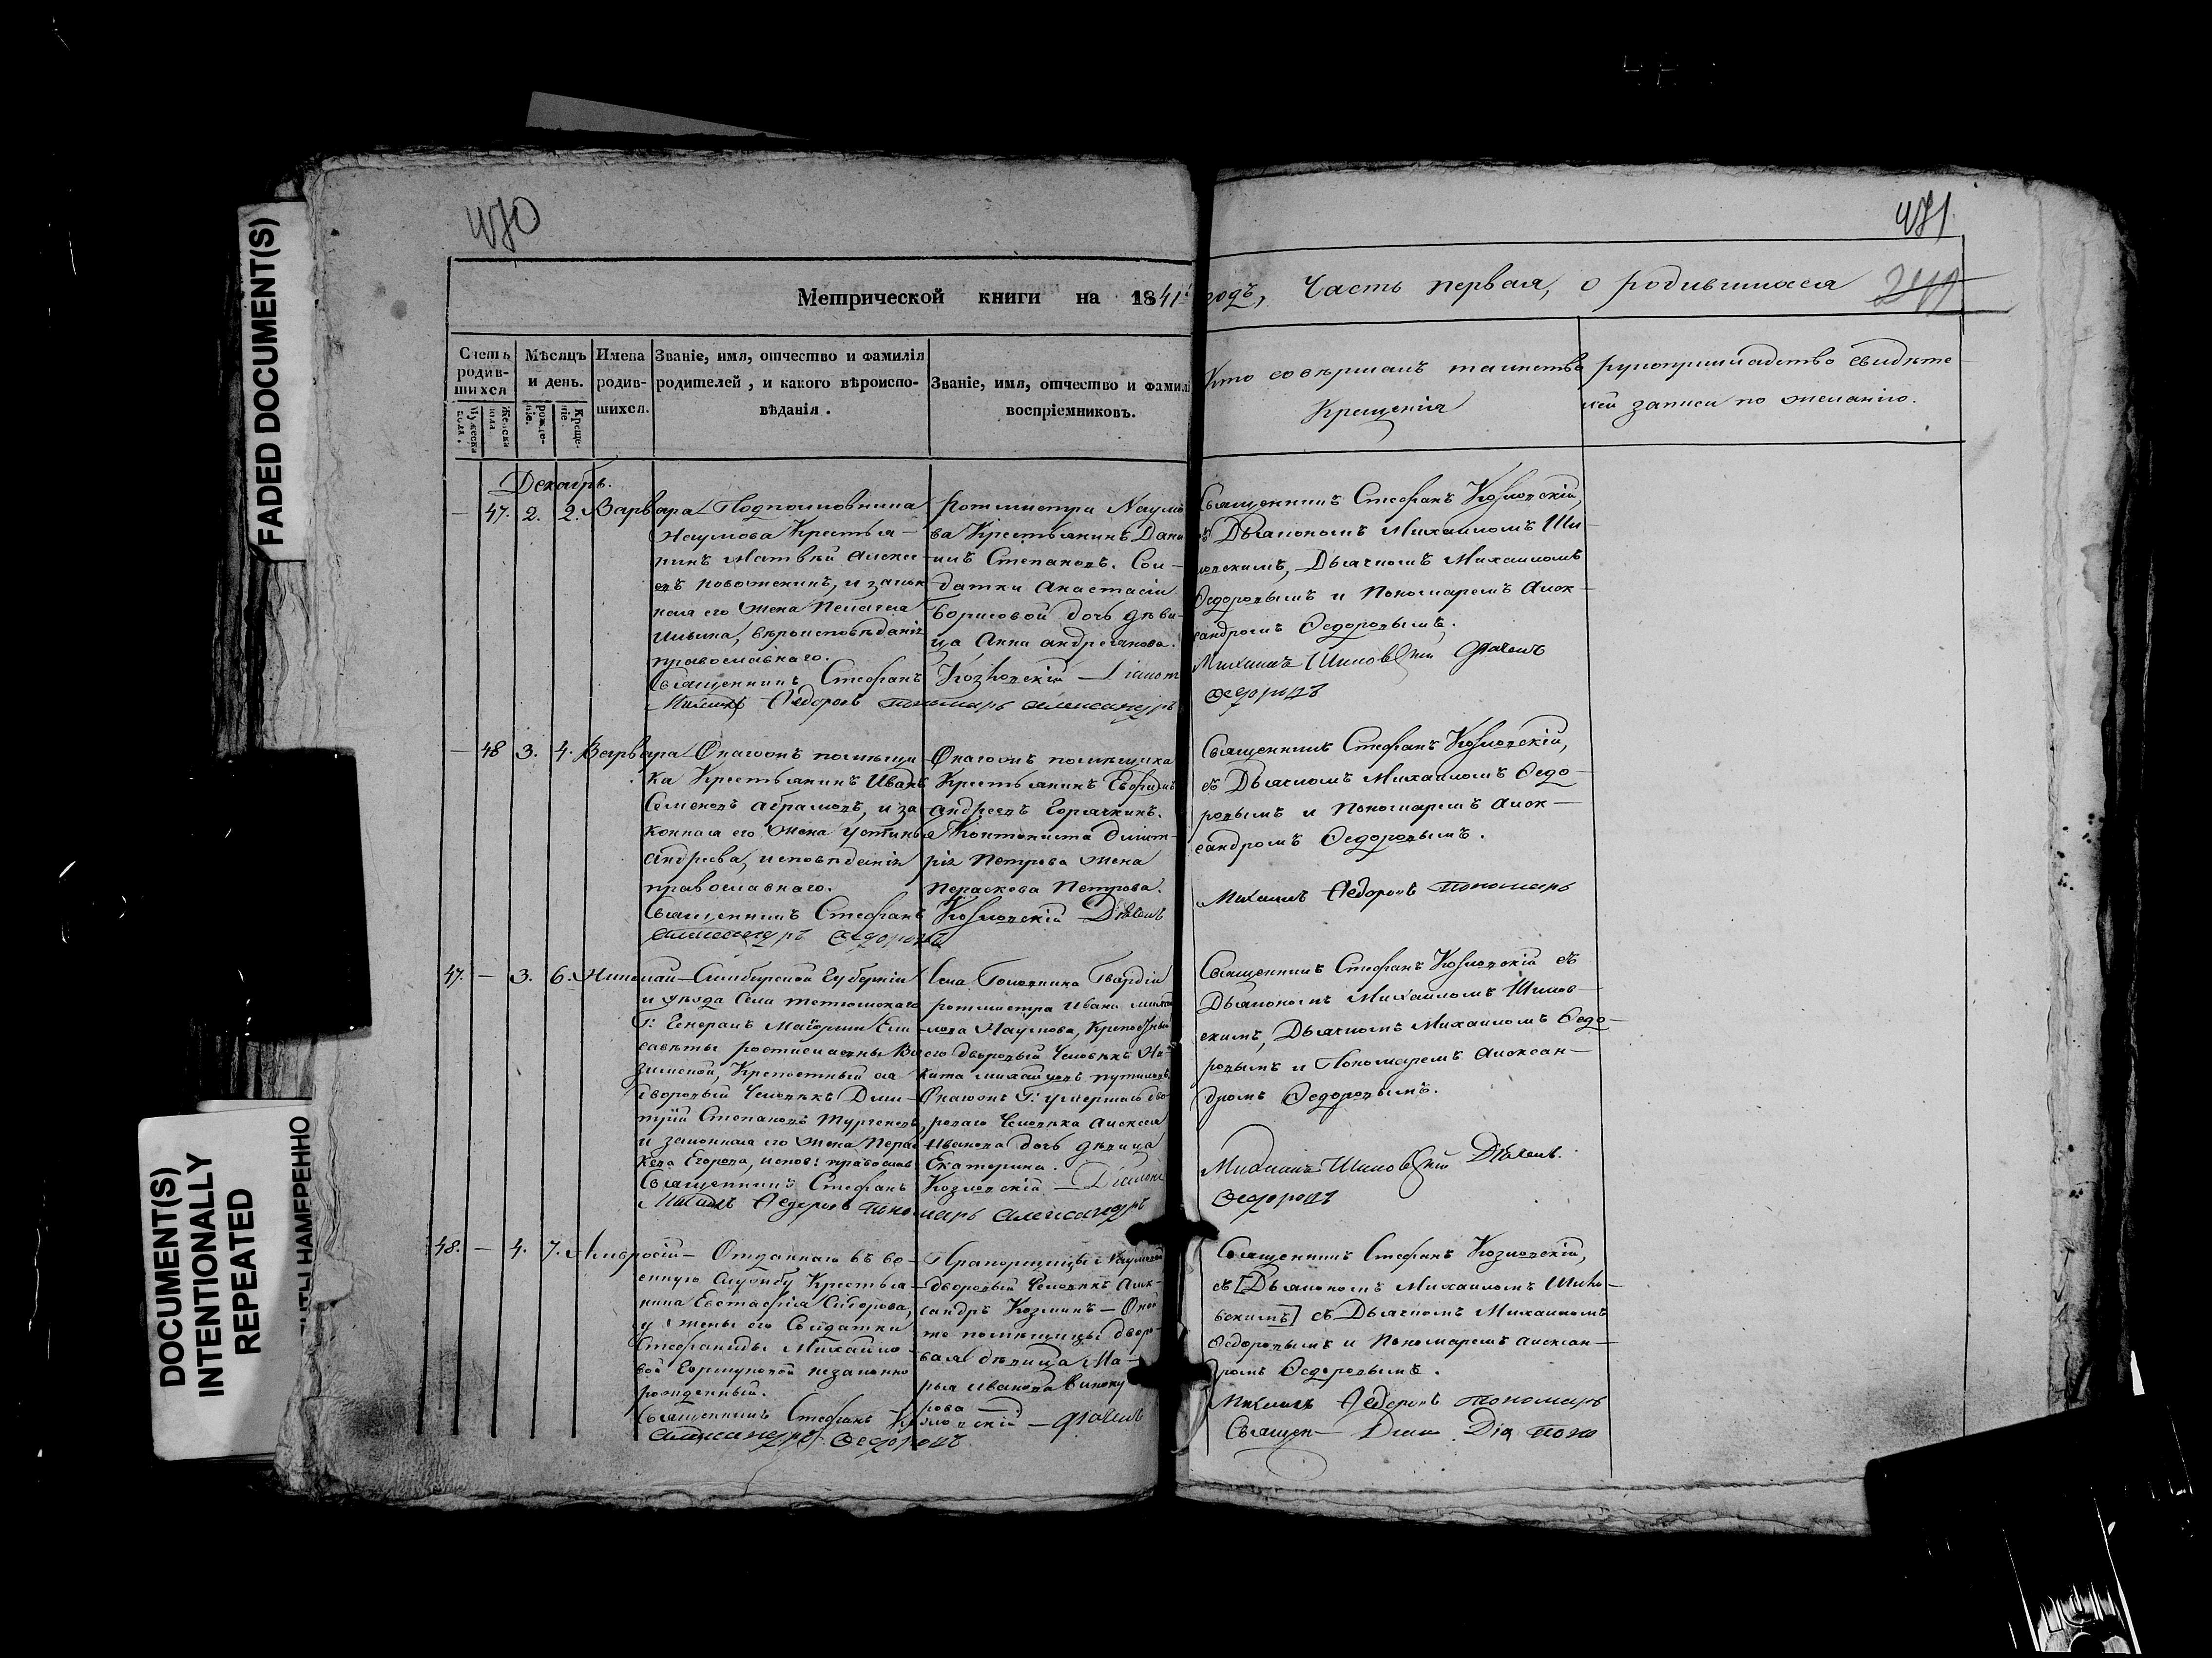 FADED DOCUMENT(S)
DOCUMENT(S)
INTENTIONALLY
REPEATED
НАМЕРЕННО
470
471
Метрической книги на 1841 годъ, Часть первая, о родившихся 249
Счетъ родившихся
Мѣсяцъ и день.
Имена родившихся.
Званіе, имя, отчество и фамилія родителей, и какого вѣроисповѣданія.
Званіе, имя, отчество и фамил
воспріемниковъ.
Кто совершалъ таинство Крещенія
рукоприкладство свидѣте
лей записи по желанію.
Мужеска пола.
Женска пола
рожденіе.
Крещеніе.
Декабрь.
— 47. 2. 2. Варвара
Подполковника
Наумова Крестья-
нинъ Матвѣй Алексе-
евъ новоженинъ, и закон
ная его жена Пелагея
Ильина, вѣроисповѣданія
православнаго.
Священникъ Стефанъ Козловскій — Діакон
Михаилъ Ѳедоровъ пономарь Александръ
Ротмистра Наумо
ва Крестьянинъ Дани
илъ Степановъ. Сол-
датки Анастасіи
Борисовой дочь дѣви-
ца Анна Андреянова.
Священникъ Стефанъ Козловскій,
съ Дьякономъ Михаиломъ Ши-
ловскимъ, Дьячкомъ Михаиломъ
Ѳедоровымъ и Пономаремъ Алек-
сандромъ Ѳедоровымъ.
Михаилъ Шиловскій Дьячекъ
Ѳедоровъ
— 48 3. 4. Варвара
Онагожъ помѣщи
ка Крестьянинъ Иванъ
Семеновъ Абрамовъ, и за
конная его жена Устинья
Андреева, исповѣданія
православнаго.
Священникъ Стефанъ Козловскій Дьячекъ
Александръ Ѳедоровъ
Онагожъ помѣщика
Крестьянинъ Ефимъ
Андреевъ Горячкинъ.
Кантониста Димит-
рія Петрова жена
Параскева Петрова.
Священникъ Стефанъ Козловскій,
съ Дьячкомъ Михаиломъ Ѳедо-
ровымъ и Пономаремъ Алек-
сандромъ Ѳедоровымъ.
Михаилъ Ѳедоровъ пономарь
47. — 3. 6. Николай
Симбирской Губерніи
и уѣзда Села Тетюшскаго
Г: Генералъ Маіорши Ели-
саветы Ростиславны Вя
земской, Крепостный ея
дворовый Человѣкъ Дми-
трій Степановъ Тургеневъ,
и законная его жена Парас
кева Егорова, испов: православ:
Священникъ Стефанъ Козловскій — Діаконъ
Михаилъ Ѳедоровъ пономарь Александръ
Села Головкина Гвардіи
ротмистра Ивана Михай
лова Наумова, Крепостный
его дворовый Человѣкъ Ни-
кита Михайловъ Путиловъ.
Онагожъ Г: умершаго дво-
роваго Человѣка Алексея
Иванова дочь дѣвица
Екатерина.
Священникъ Стефанъ Козловскій съ
Дьякономъ Михаиломъ Шилов-
скимъ, Дьячкомъ Михаиломъ Ѳедо-
ровымъ и Пономаремъ Алексан-
дромъ Ѳедоровымъ.
Михаилъ Шиловскій Дьячекъ
Ѳедоровъ
48. — 4. 7. Амвросій
Отданнаго въ во-
енную службу Крестья-
нина Евстафія Сидорова,
у жены его Солдатки
Стефаниды Михайло-
вой Горшуновой незаконно
рожденный.
Священникъ Стефанъ Козловскій — Дьячекъ
Александръ Ѳедоровъ
Прапорщицы Наумовой
дворовый Человѣкъ Алек-
сандръ Козминъ — Оной
же помѣщицы дворо-
вая дѣвица Ма-
рья Иванова Виноку
рова
Священникъ Стефанъ Козловскій,
съ [Дьякономъ Михаиломъ Шило-
вскимъ] съ Дьячкомъ Михаиломъ
Ѳедоровымъ и Пономаремъ Алексан-
дромъ Ѳедоровымъ.
Михаилъ Ѳедоровъ пономарь
Священ— Діак Дія поно